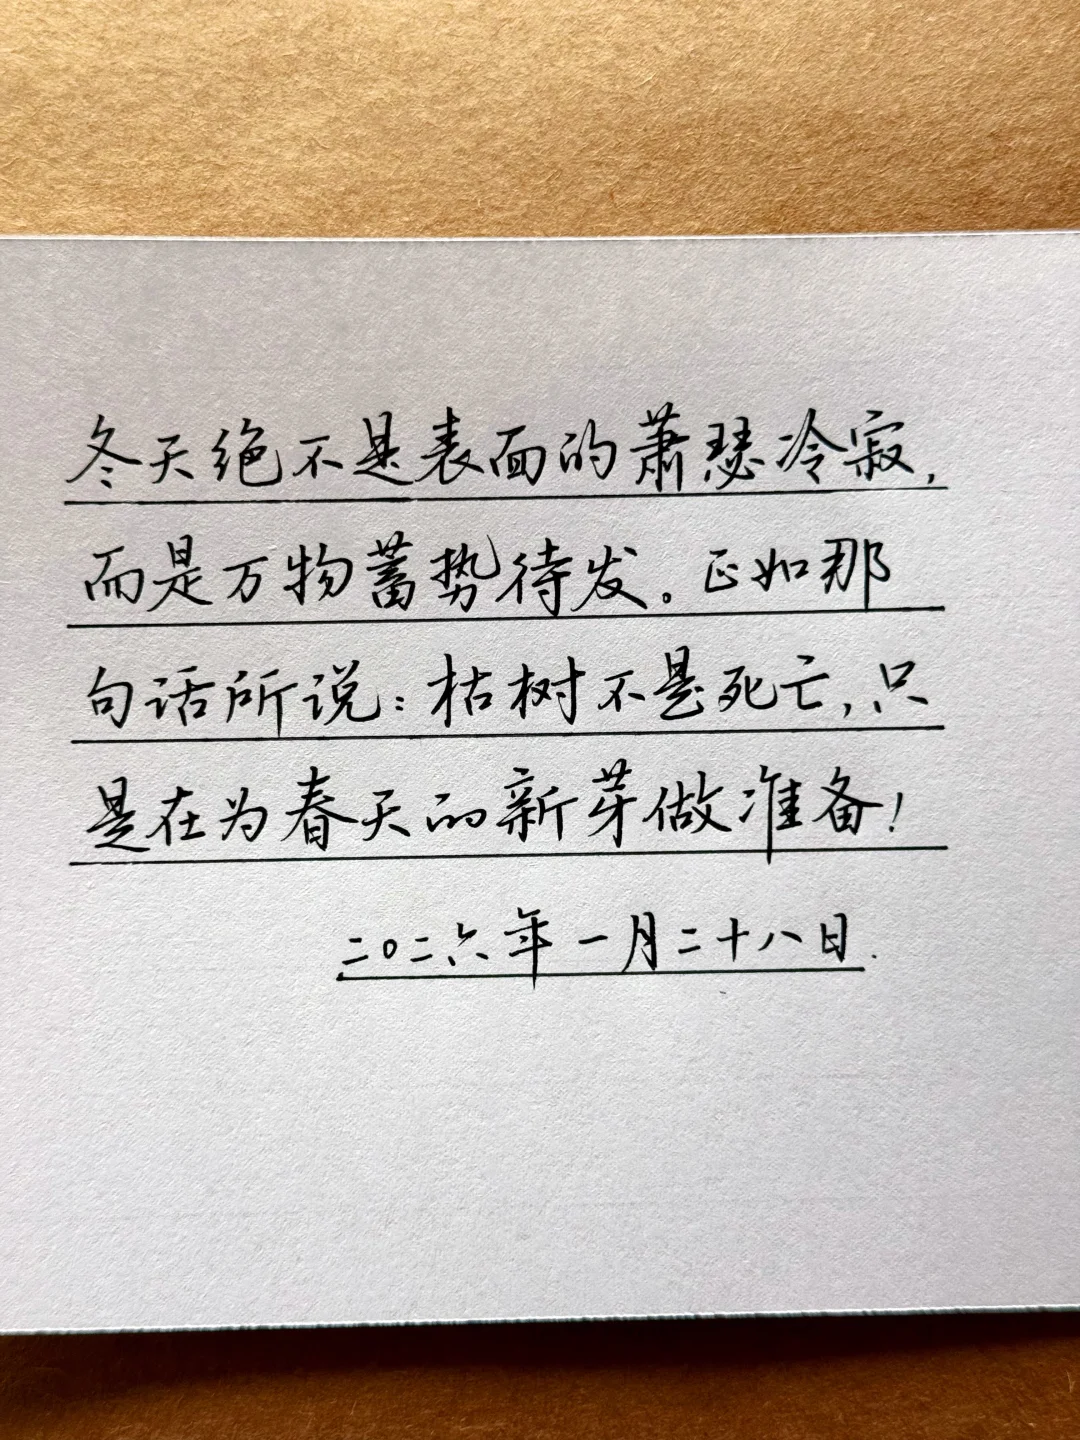 冬天绝不是表面的萧瑟冷寂，
而是万物蓄势待发。正如那
句话所说：枯树不是死亡，只
是在为春天的新芽做准备！
二〇二六年一月二十八日.